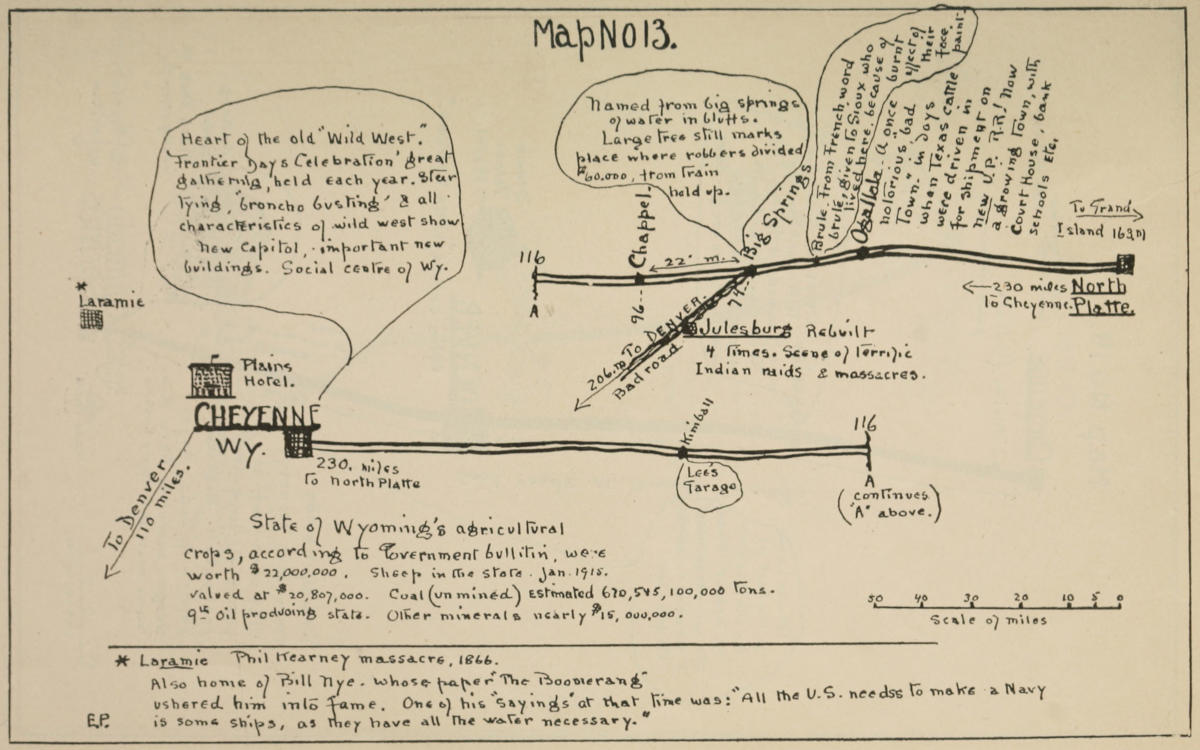 Map No 13.
Heart of the old "Wild West".
"Frontier Days Celebration" great
gathering, held each year. Steir
tying, "broncho busting" & all
characteristics of wild west show
New Capitol, important new
buildings. Social centre of Wy.
Named from big springs
of water in bluffs.
Large tree still marks
place where robbers divided
$60.000, from train
hold up.
Brule from French word
brulé, given to Sioux who
lived here, because of
burnt
effect of
their
face
paint.
Ogallala. A once
notorious "bad
Town." in days
when Texas cattle
were driven in
for shipment on
new U.P. R.R! Now
a growing Town, with
Court House, bank
schools Etc.
To Grand
Island 163 m
116
A
Chappel.
96
22 m.
Big Springs
74
← 230 miles
To Cheyenne.
North
Platte.
206. m To DENVER.
Bad road
Julesburg Rebuilt
4 Times. Scene of Terrific
Indian raids & massacres.
* Laramie
Plains
Hotel.
CHEYENNE
Wy.
230. miles
To North Platte
Kimball
Lee's
Garage
116
A
(continues
"A" above.)
To Denver
110 miles.
State of Wyoming's agricultural
crops, according to Government bullitin, were
worth $22,000,000. Sheep in the state. Jan. 1915.
valued at $20,807,000. Coal (unmined) Estimated 670,545,100,000 Tons.
9th Oil produoing state. Other minerals nearly $15,000,000.
50 40 30 20 10 5 0
Scale of miles
* Laramie Phil Kearney massacre, 1866.
Also home of Bill Nye. whose paper "The Boomerang"
ushered him into fame. One of his "sayings" at that time was: "All the U.S. needss to make a Navy
is some ships, as they have all the water necessary."
E.P.